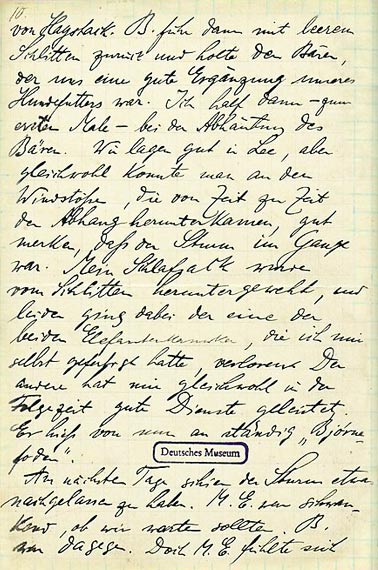 10.
von Hagstack. B. fuhr dann mit leerem
Schlitten zurück und holte den Bären,
der uns eine gute Ergänzung unseres
Hundefutters war. Ich half dann – zum
ersten Male – bei der Abhäutung des
Bären. Wir lagen gut in Lee, aber
gleichwohl konnte man an den
Windstößen, die von Zeit zu Zeit
den Abhang herunterkamen, gut
merken, daß der Sturm im Gange
war. Mein Schlafsack wurde
vom Schlitten heruntergeweht, und
leider ging dabei der eine der
beiden, die ich mir
selbst gefertigt hatte, verloren. Der
andere hat mir gleichwohl in der
Folgezeit gute Dienste geleistet.
Er hieß von nun an ständig „Björne
foden".
Deutsches Museum
Am nächsten Tage schien der Sturm etwas
nachgelassen zu haben. M. E. war schwan-
kend, ob wir warten sollten, B.
war dagegen. Doch M. E. fühlte sich